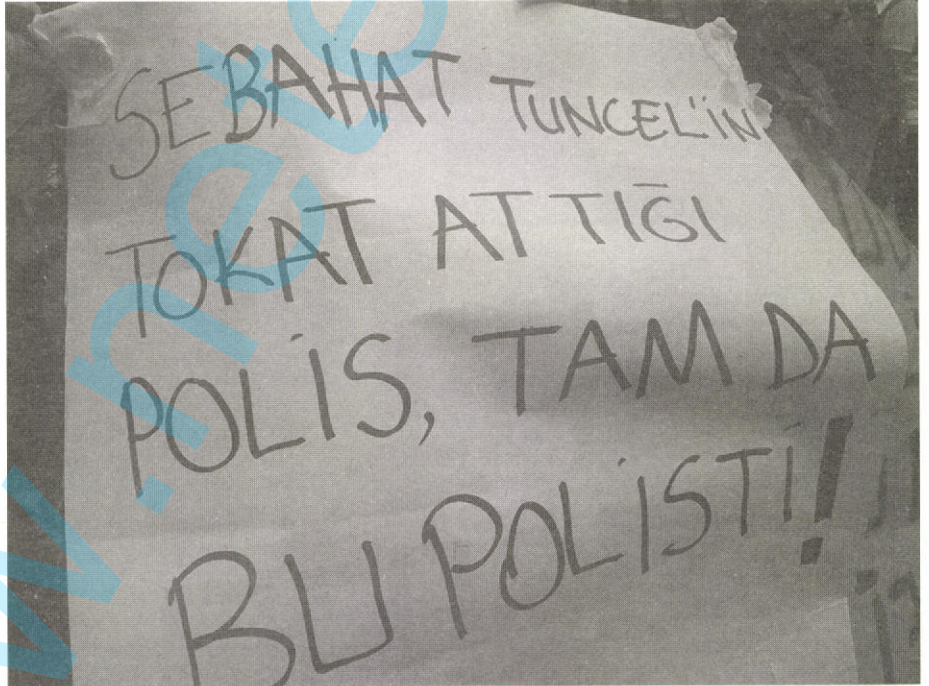 SEBAHAT TUNCEL'İN
TOKAT ATTIĞI
POLİS, TAM DA
BU POLİSTİ!